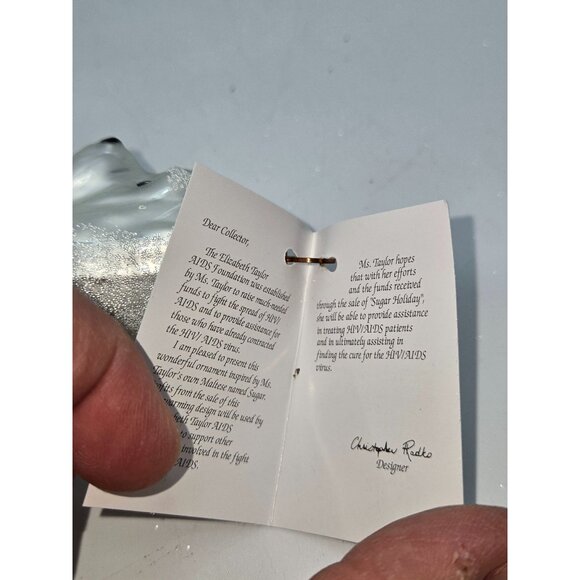 Dear Collector,
The Elizabeth Taylor
AIDS Foundation was established
by Ms. Taylor to raise much-needed
funds to fight the spread of HIV/
AIDS and to provide assistance for
those who have already contracted
the HIV/AIDS virus.
I am pleased to present this
wonderful ornament inspired by Ms.
Taylor's own Maltese named Sugar.
from the sale of this
design will be used by
Taylor AIDS
to support other
involved in the fight
AIDS.
Ms. Taylor hopes
that with her efforts
and the funds received
through the sale of "Sugar Holiday",
she will be able to provide assistance
in treating HIV/AIDS patients
and in ultimately assisting in
finding the cure for the HIV/AIDS
virus.
Christopher Radko
Designer